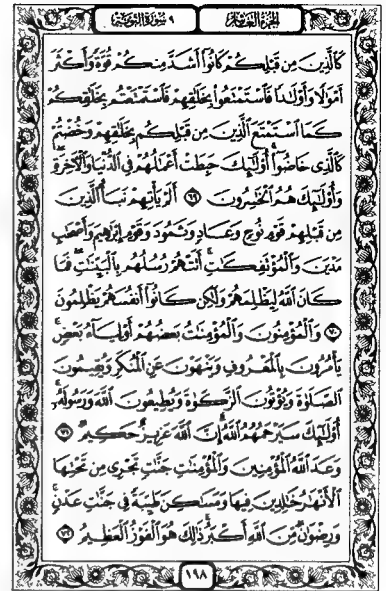 الجزء العاشر
٩ سورة التوبة
كَٱلَّذِينَ مِن قَبْلِكُمْ كَانُوٓا۟ أَشَدَّ مِنكُمْ قُوَّةً وَأَكْثَرَ
أَمْوَٰلًا وَأَوْلَـٰدًا فَٱسْتَمْتَعُوا۟ بِخَلَـٰقِهِمْ فَٱسْتَمْتَعْتُم بِخَلَـٰقِكُمْ
كَمَا ٱسْتَمْتَعَ ٱلَّذِينَ مِن قَبْلِكُم بِخَلَـٰقِهِمْ وَخُضْتُمْ
كَٱلَّذِى خَاضُوٓا۟ أُو۟لَـٰٓئِكَ حَبِطَتْ أَعْمَـٰلُهُمْ فِى ٱلدُّنْيَا وَٱلْـَٔاخِرَةِ
وَأُو۟لَـٰٓئِكَ هُمُ ٱلْخَـٰسِرُونَ ٦٩ أَلَمْ يَأْتِهِمْ نَبَأُ ٱلَّذِينَ
مِن قَبْلِهِمْ قَوْمِ نُوحٍ وَعَادٍ وَثَمُودَ وَقَوْمِ إِبْرَٰهِيمَ وَأَصْحَـٰبِ
مَدْيَنَ وَٱلْمُؤْتَفِكَـٰتِ أَتَتْهُمْ رُسُلُهُم بِٱلْبَيِّنَـٰتِ فَمَا
كَانَ ٱللَّهُ لِيَظْلِمَهُمْ وَلَـٰكِن كَانُوٓا۟ أَنفُسَهُمْ يَظْلِمُونَ
٧٠ وَٱلْمُؤْمِنُونَ وَٱلْمُؤْمِنَـٰتُ بَعْضُهُمْ أَوْلِيَآءُ بَعْضٍ
يَأْمُرُونَ بِٱلْمَعْرُوفِ وَيَنْهَوْنَ عَنِ ٱلْمُنكَرِ وَيُقِيمُونَ
ٱلصَّلَوٰةَ وَيُؤْتُونَ ٱلزَّكَوٰةَ وَيُطِيعُونَ ٱللَّهَ وَرَسُولَهُۥٓ
أُو۟لَـٰٓئِكَ سَيَرْحَمُهُمُ ٱللَّهُ إِنَّ ٱللَّهَ عَزِيزٌ حَكِيمٌ ٧١
وَعَدَ ٱللَّهُ ٱلْمُؤْمِنِينَ وَٱلْمُؤْمِنَـٰتِ جَنَّـٰتٍ تَجْرِى مِن تَحْتِهَا
ٱلْأَنْهَـٰرُ خَـٰلِدِينَ فِيهَا وَمَسَـٰكِنَ طَيِّبَةً فِى جَنَّـٰتِ عَدْنٍ
وَرِضْوَٰنٌ مِّنَ ٱللَّهِ أَكْبَرُ ذَٰلِكَ هُوَ ٱلْفَوْزُ ٱلْعَظِيمُ ٧٢
١٩٨